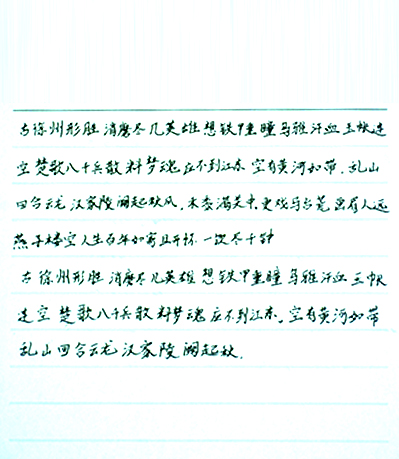 古徐州形胜 消磨尽几英雄 想铁甲重瞳 乌骓汗血 玉帐连
空 楚歌八千兵散 料梦魂 应不到江东 空有黄河如带、乱山
回合云龙 汉家陵阙起秋风、禾黍满关中,更戏马台荒,画眉人远
燕子楼空 人生百年如寄 且开怀 一饮尽千钟
古徐州形胜 消磨尽几英雄 想铁甲重瞳 乌骓汗血 玉帐
连空 楚歌八千兵散 料梦魂 应不到江东,空有黄河如带
乱山回合云龙 汉家陵阙起秋.